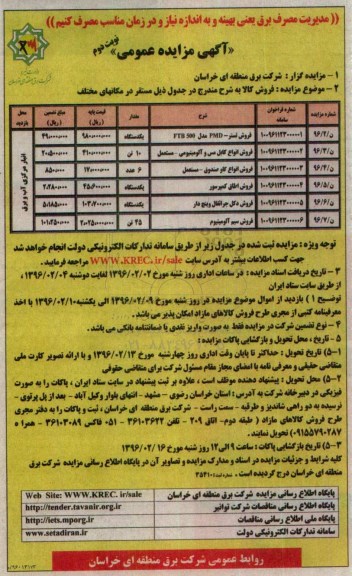 (( مدیریت مصرف برق یعنی بهینه و به اندازه نیاز و در زمان مناسب مصرف کنیم ))
«آگهی مزایده عمومی» نوبت دوم
۱ - مزایده گزار : شرکت برق منطقه ای خراسان
۲ - موضوع مزایده : فروش کالا به شرح مندرج در جدول ذیل مستقر در مکانهای مختلف
شماره مزایده شماره فراخوان سامانه شرح مقدار قیمت پایه (ریال) مبلغ تضمین (ریال) محل بازدید
فروش تستر PMD مدل FTB 500 یکدستگاه
فروش انواع کابل مس و آلومینیومی مستعمل ۱۰ تن
فروش انواع کاور صندوق مستعمل ۶ عدد
فروش اتاق کمپرسور یکدستگاه
فروش دکل جراثقال وینچ دار یکدستگاه
فروش سیم آلومینیوم ۲۵ تن
انبار مرکزی آب و برق
توجه ویژه : مزایده ثبت شده در جدول زیر از طریق سامانه تدارکات الکترونیکی دولت انجام خواهد شد
جهت کسب اطلاعات بیشتر به آدرس سایت WWW.KREC.ir/sale مراجعه فرمایید .
۳ - تاریخ دریافت اسناد مزایده : در ساعات اداری روز شنبه مورخ ۱۳۹۶/۰۲/۰۲ لغایت دوشنبه ۱۳۹۶/۰۲/۰۴ ،
از طریق سایت ستاد ایران
توضیح ۱ ) بازدید از اموال موضوع مزایده در روز شنبه مورخ ۱۳۹۶/۰۲/۰۹ الی یکشنبه ۱۳۹۶/۰۲/۱۰ با اخذ
معرفینامه کتبی از مجری طرح فروش کالاهای مازاد امکان پذیر می باشد .
۴ - نوع تضمین شرکت در مزایده فقط به صورت واریز نقدی یا ضمانتنامه بانکی می باشد .
۵ - تاریخ ، محل تحویل و بازگشایی پاکات مزایده :
۱-۵) تاریخ تحویل : حداکثر تا پایان وقت اداری روز چهارشنبه مورخ ۱۳۹۶/۰۲/۱۳ و با ارائه تصویر کارت ملی
متقاضی حقیقی و معرفی نامه با امضای مجاز مقام مسئول شرکت برای متقاضی حقوقی
۲-۵) محل تحویل : پیشنهاد دهنده موظف است ، علاوه بر ثبت پیشنهاد در سایت ستاد ایران ، پاکات را به صورت
فیزیکی در دبیرخانه شرکت به آدرس : استان خراسان رضوی - مشهد - انتهای بلوار وکیل آباد - بعد از پل پرتوی -
نرسیده به دو راهی شاندیز و طرقبه - سمت راست - شرکت برق منطقه ای خراسان ، ثبت و پاکات را به دفتر مجری
طرح فروش کالاهای مازاد ( طبقه دوم- اتاق ۲۰۹ - تلفن ۳۶۱۰۳۶۲۲ - ۰۵۱ فاکس ۳۶۱۰۳۰۸۹ - همراه
۰۹۱۵۵۷۹۰۲۸۷) تحویل نمایند .
۳-۵) تاریخ بازگشایی پاکات : ساعت ۹ الی ۱۲ روز شنبه مورخ ۱۳۹۶/۰۲/۱۶
کلیه شرایط و جزئیات مزایده در اسناد و مدارک مزایده و تصاویر آن در پایگاه اطلاع رسانی مزایده شرکت برق
منطقه ای خراسان درج گردیده است .
پایگاه اطلاع رسانی مزایده شرکت برق منطقه ای خراسان Web Site: WWW.KREC.ir/sale
پایگاه اطلاع رسانی مناقصات شرکت توانیر http://tender.tavanir.org.ir
پایگاه ملی اطلاع رسانی مناقصات http://iets.mporg.ir
سامانه تدارکات الکترونیکی دولت www.setadiran.ir
روابط عمومی شرکت برق منطقه ای خراسان